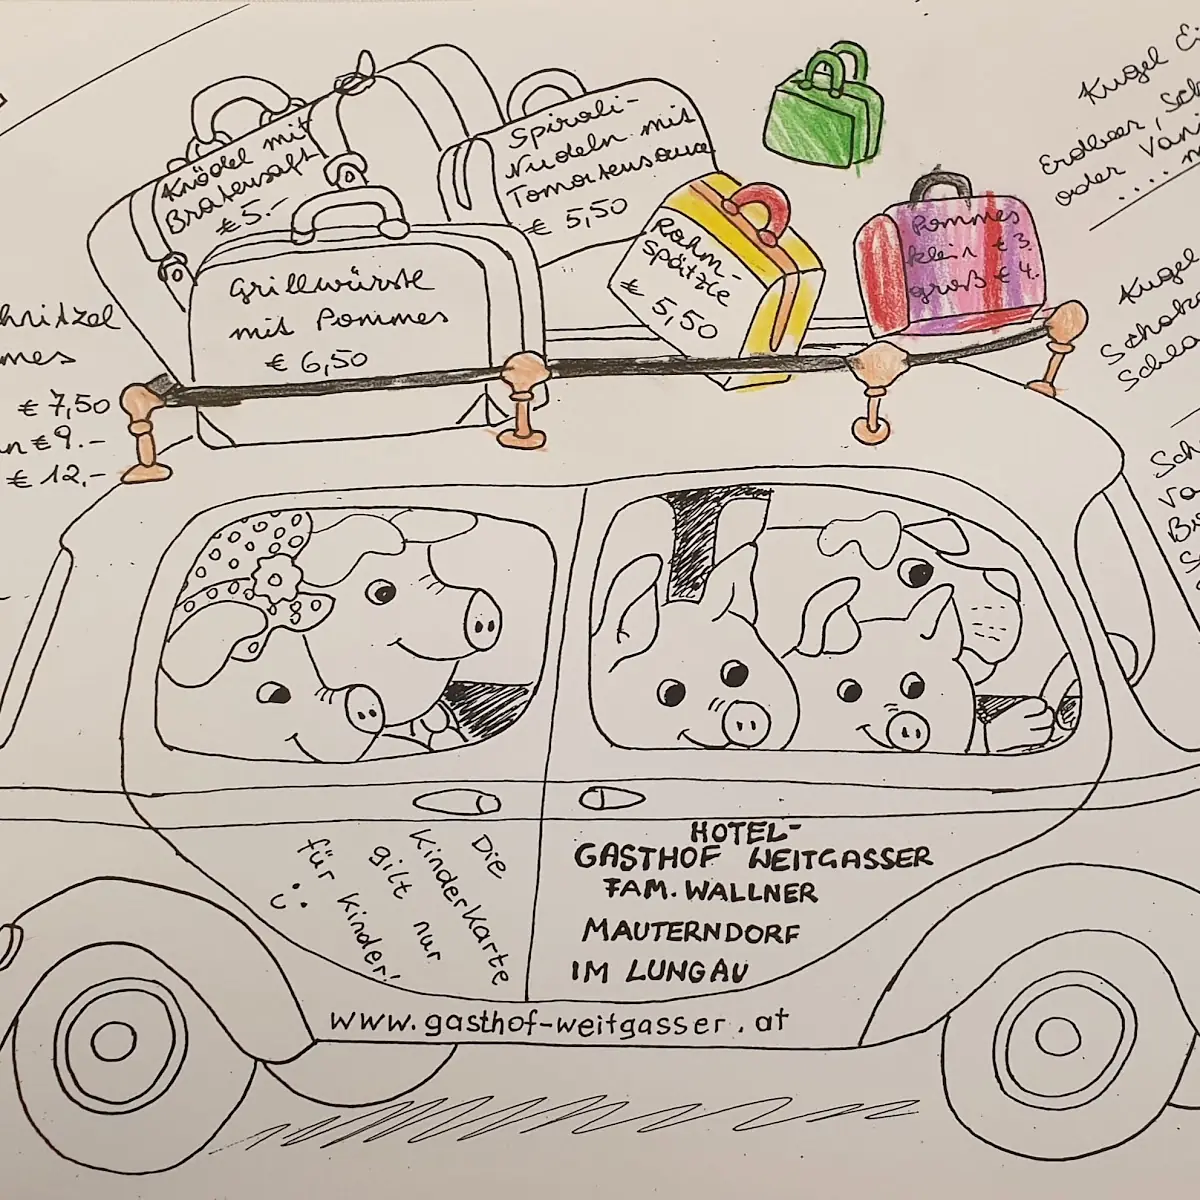 Knödel mit
Bratensaft
€ 5.-
Spirali-
Nudeln mit
Tomatensauce
€ 5,50
Grillwürste
mit Pommes
€ 6,50
Rahm-
spätzle
€ 5,50
Pommes
klein € 3.
groß € 4.-
€ 7,50
€ 9.-
€ 12,-
Kugel
Erdbeer,
oder
....
Kugel
Die
Kinderkarte
gilt nur
für Kinder!
HOTEL-
GASTHOF WEITGASSER
FAM. WALLNER
MAUTERNDORF
IM LUNGAU
www.gasthof-weitgasser.at